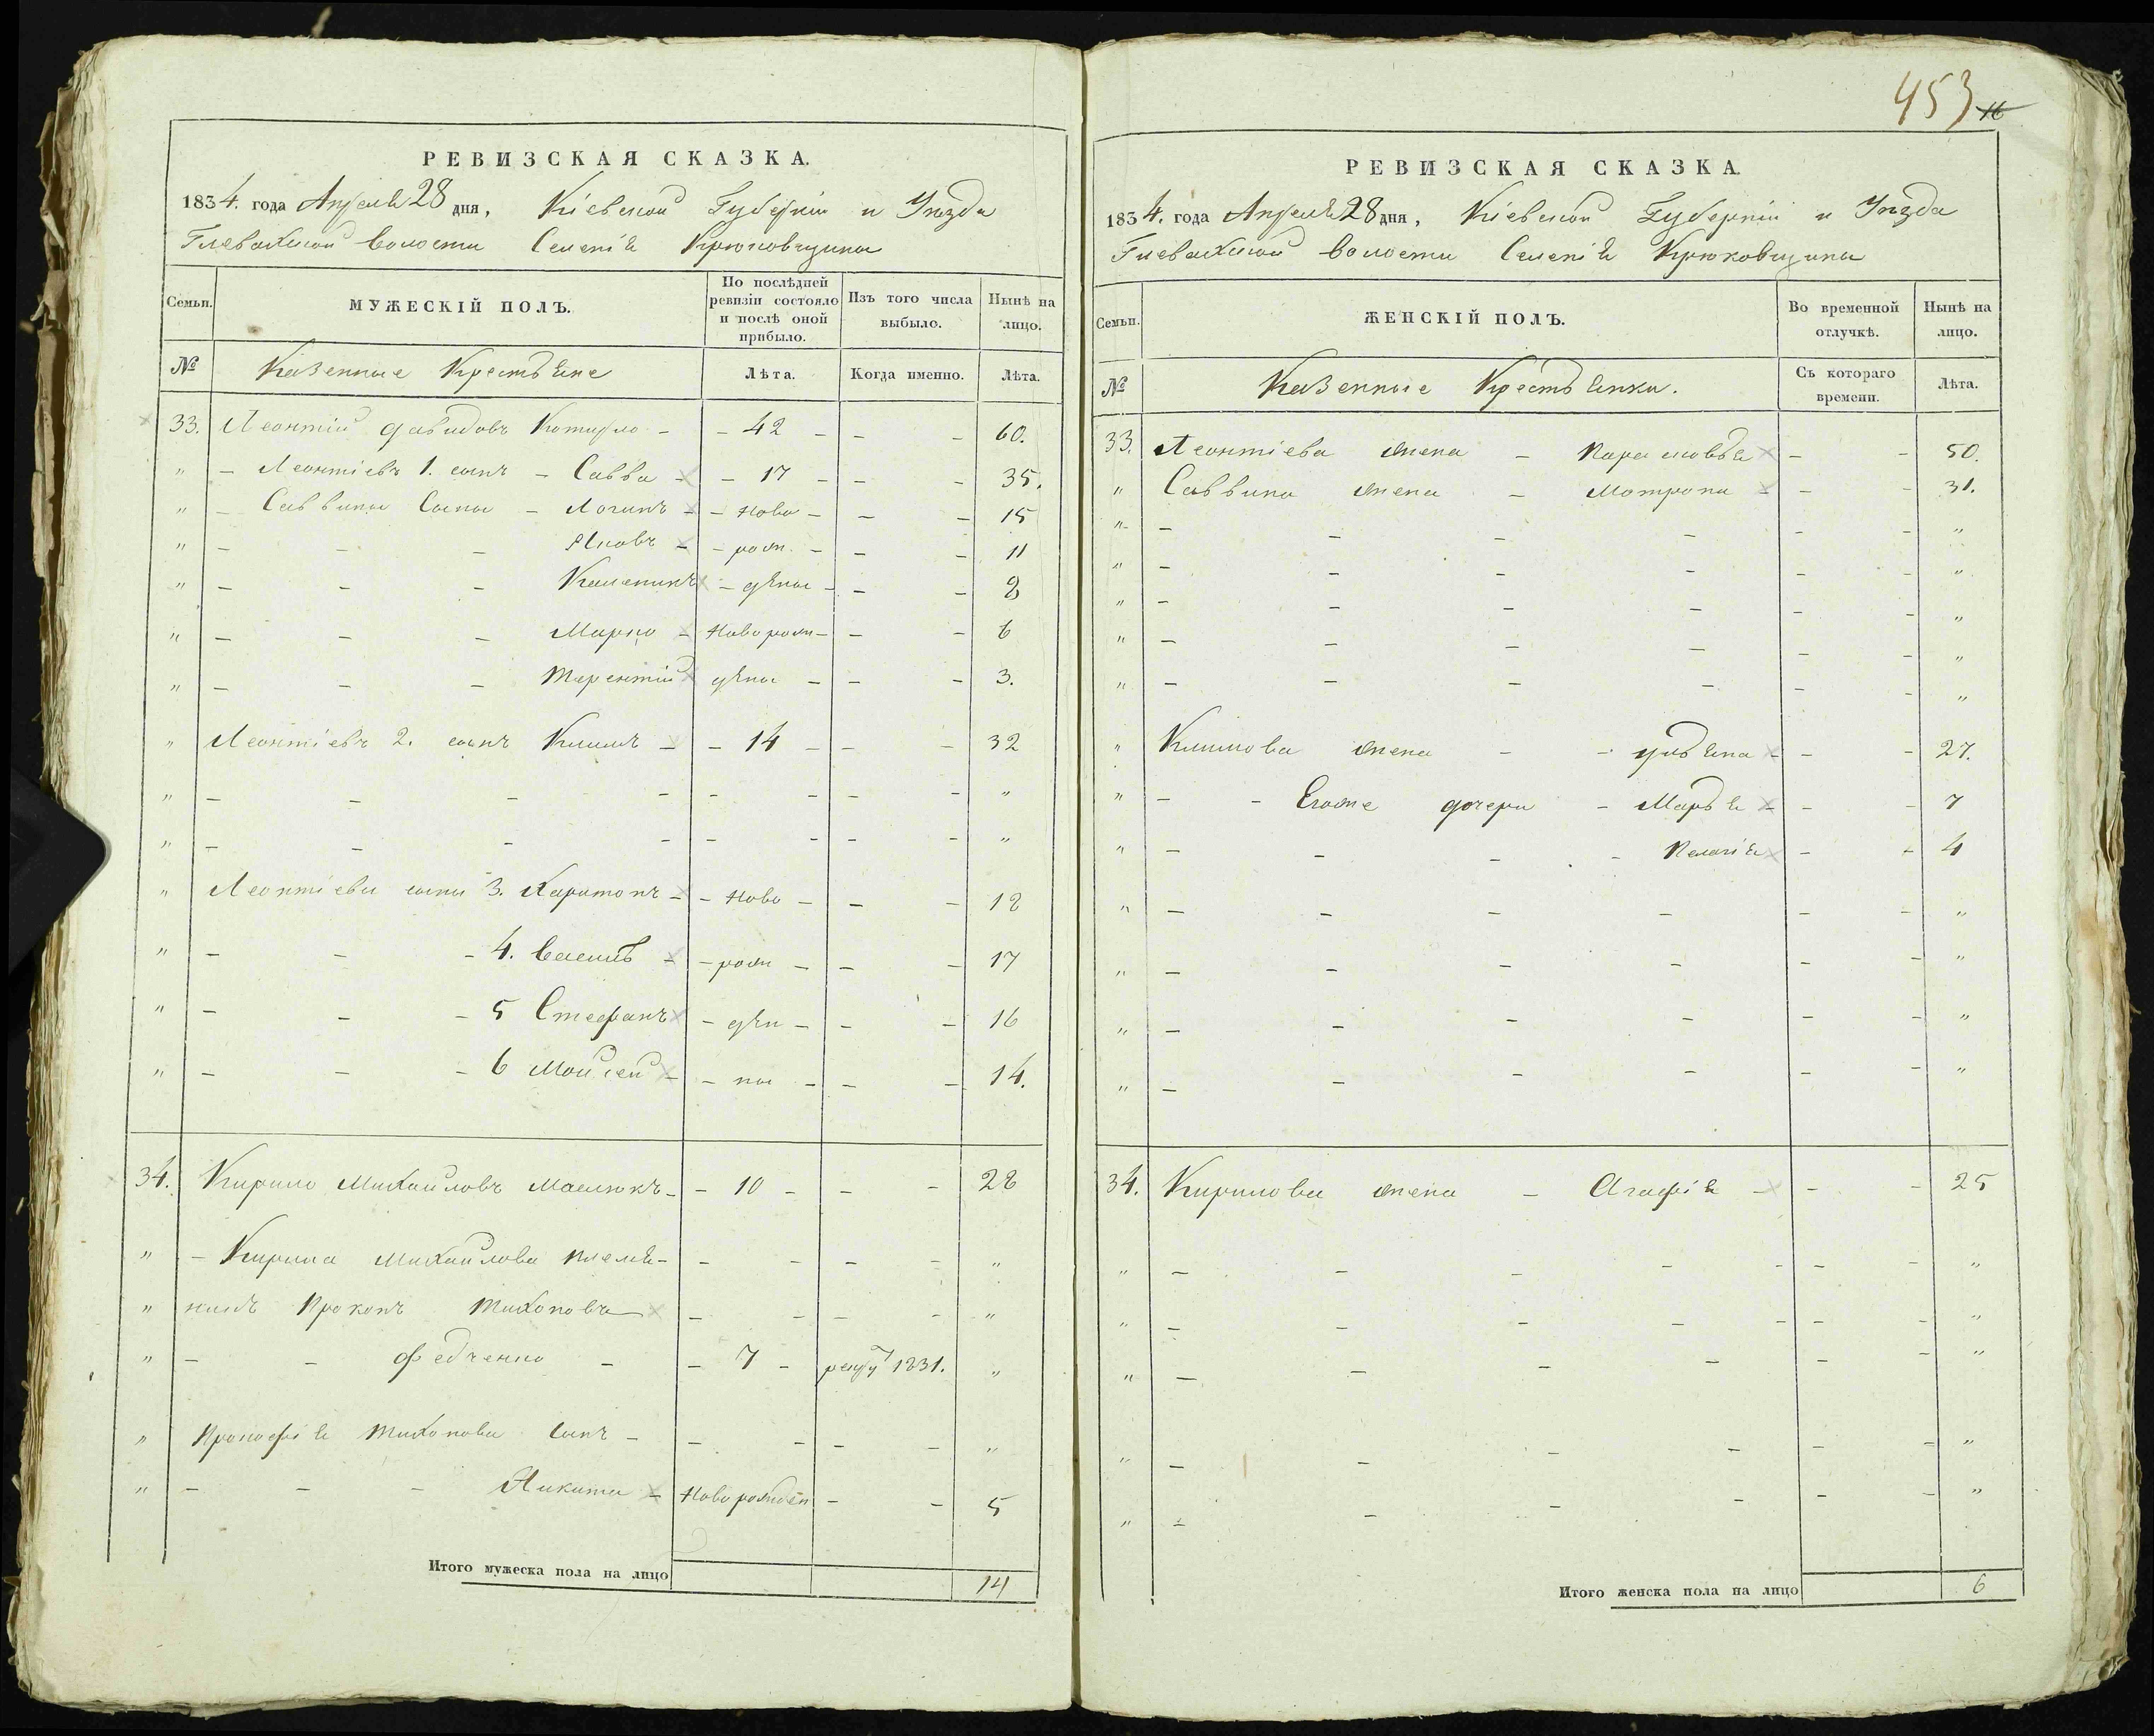 453 16
РЕВИЗСКАЯ СКАЗКА.
1834. года Апреля 28 дня, Кіевской Губерніи и Уѣзда
Глевахской волости Селенія Крюковщины
Семьи. МУЖЕСКІЙ ПОЛЪ. По послѣдней ревизіи состояло и послѣ оной прибыло. Изъ того числа выбыло. Нынѣ на лицо.
№ Казенные Крестьяне Лѣта. Когда именно. Лѣта.
33. Леонтій Давидовъ - 42 - - - 60.
" - Леонтіевъ 1. сынъ - Савва - - 17 - - - 35.
" - Саввины Сыны - Логинъ - - Ново - - - 15
" - - - Яковъ - - рож. - - - 11
" - - - Каленикъ - дены - - - 8
" - - - Марко - Новорож - - - 6
" - - - Терентій дены - - - 3.
" Леонтіевъ 2. сынъ Климъ - - 14 - - - 32
" - - - - - - - - "
" - - - - - - - - "
" Леонтіевы сыны 3. Харитонъ - - Ново - - - 18
" - - - 4. Василь - - рож - - - 17
" - - - 5 Стефанъ - ден - - - 16
" - - - 6 Мойсей - - ны - - - 14.
34. Кирило Михайловъ Маслюкъ - - 10 - - - 28
" - Кирила Михайлова племя- - - - - "
" никъ Прокопъ Тихоновъ - - - - "
" - - Федченко - - 7 - рекру 1831. "
" Прокофія Тихонова сынъ - - - - - "
" - - - Никита - Новорожден - - 5
Итого мужеска пола на лицо 14
РЕВИЗСКАЯ СКАЗКА.
1834. года Апреля 28 дня, Кіевской Губерніи и Уѣзда
Глевахской волости Селенія Крюковщины
Семьи. ЖЕНСКІЙ ПОЛЪ. Во временной отлучкѣ. Нынѣ на лицо.
№ Казенные Крестьянки. Съ котораго времени. Лѣта.
33. Леонтіева жена - Парасковья - - 50.
" Саввина жена - Мотрона - - - 31.
" - - - - - - "
" - - - - - - "
" - - - - - - "
" - - - - - - "
" - - - - - - "
" Климова жена - - Ульяна - - - 27.
" - - Егоже дочери - Марья - - - 7
" - - - - Пелагія - - 4
" - - - - - - "
" - - - - - - "
" - - - - - - "
" - - - - - - "
34. Кирилова жена - Агафія - - - 25
" - - - - - - - "
" - - - - - - - "
" - - - - - - "
" - - - - - - "
" - - - - - - "
Итого женска пола на лицо 6